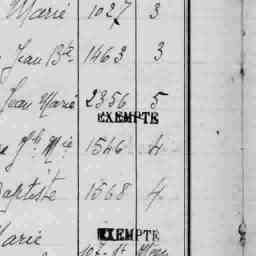 Marie 1027 3
Jean Bte 1463 3
Jean Marie 2356 5
EXEMPTE
1546 4
Baptiste 1568 4
EXEMPTE
Marie